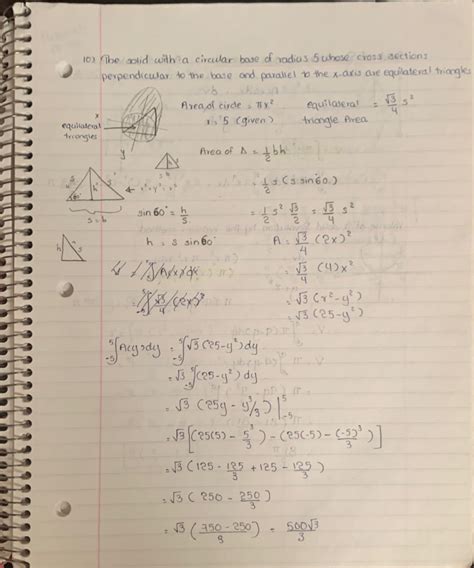 10) The solid with a circular base of radius 5 whose cross sections
perpendicular to the base and parallel to the x-axis are equilateral triangles
x
equilateral triangles
y
Area of circle = πx²
x = 5 (given)
equilateral triangle Area = √3/4 s²
Area of Δ = 1/2 bh
= 1/2 s (s sin60°)
= 1/2 s² √3/2 = √3/4 s²
s h s
60°
s = b
x² + y² = r²
h s
sin60° = h/s
h = s sin60°
A = √3/4 (2x)²
= √3/4 (4)x²
= √3 (r² - y²)
= √3 (25 - y²)
∫A(x)dx
∫√3/4 (2x)²
5∫-5 A(y)dy = 5∫-5 √3 (25 - y²) dy
= √3 5∫-5 (25 - y²) dy
= √3 (25y - y³/3) |5 -5
= √3 [(25(5) - 5³/3) - (25(-5) - (-5)³/3)]
= √3 (125 - 125/3 + 125 - 125/3)
= √3 (250 - 250/3)
= √3 (750 - 250/3) = 500√3/3